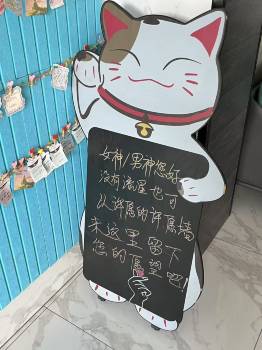 女神/男神您好
没有流星也可
以许愿的许愿墙
来这里留下
您的愿望吧!